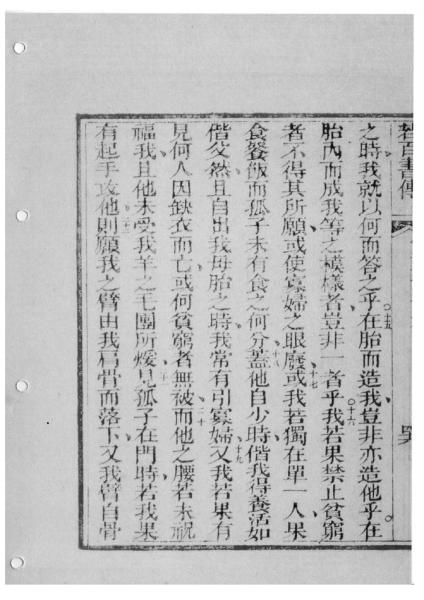 若百書傳
之時我就以何而答之乎○十五在胎而造我豈非亦造他乎在
胎內而成我等之模樣者豈非一者乎○十六我若果禁止貧窮
者不得其所願或使寡婦之眼廢十七或我若獨在單一人果
食餐飯而孤子未有食之何分十八蓋他自少時偕我得養活如
偕父然且自出我母胎之時我常有引寡婦十九又我若果有
見何人因缺衣而亡或何貧窮者無被二十而他之腰若未祝
福我且他未受我羊之毛團所煖廿一見孤子在門時若我果
有起手攻他廿二則願我之臂由我肩骨而落下又我臂自骨